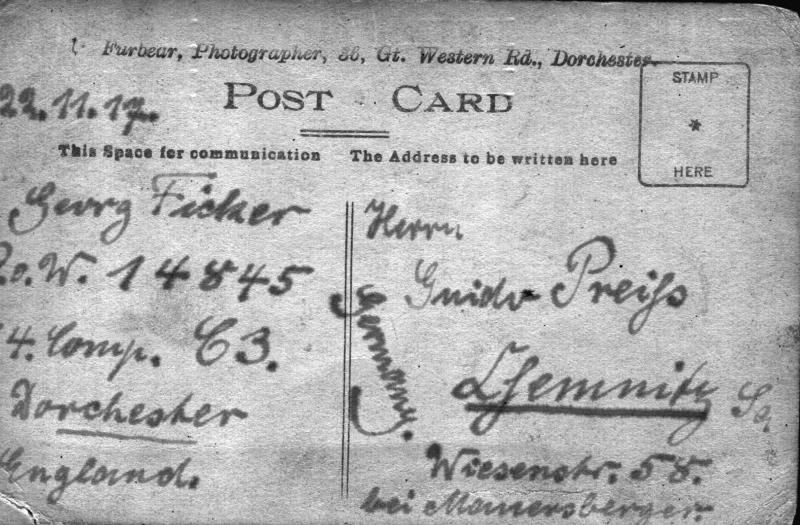 Furbear, Photographer, 36, Gt. Western Rd., Dorchester.
POST CARD
STAMP
*
HERE
22.11.17.
This Space for communication
The Address to be written here
Georg Ficker
P.o.W. 14845
4. Comp. C3.
Dorchester
England.
Herrn
Guido Preiß
Chemnitz Sa.
Wiesenstr. 58.
bei
Germany.